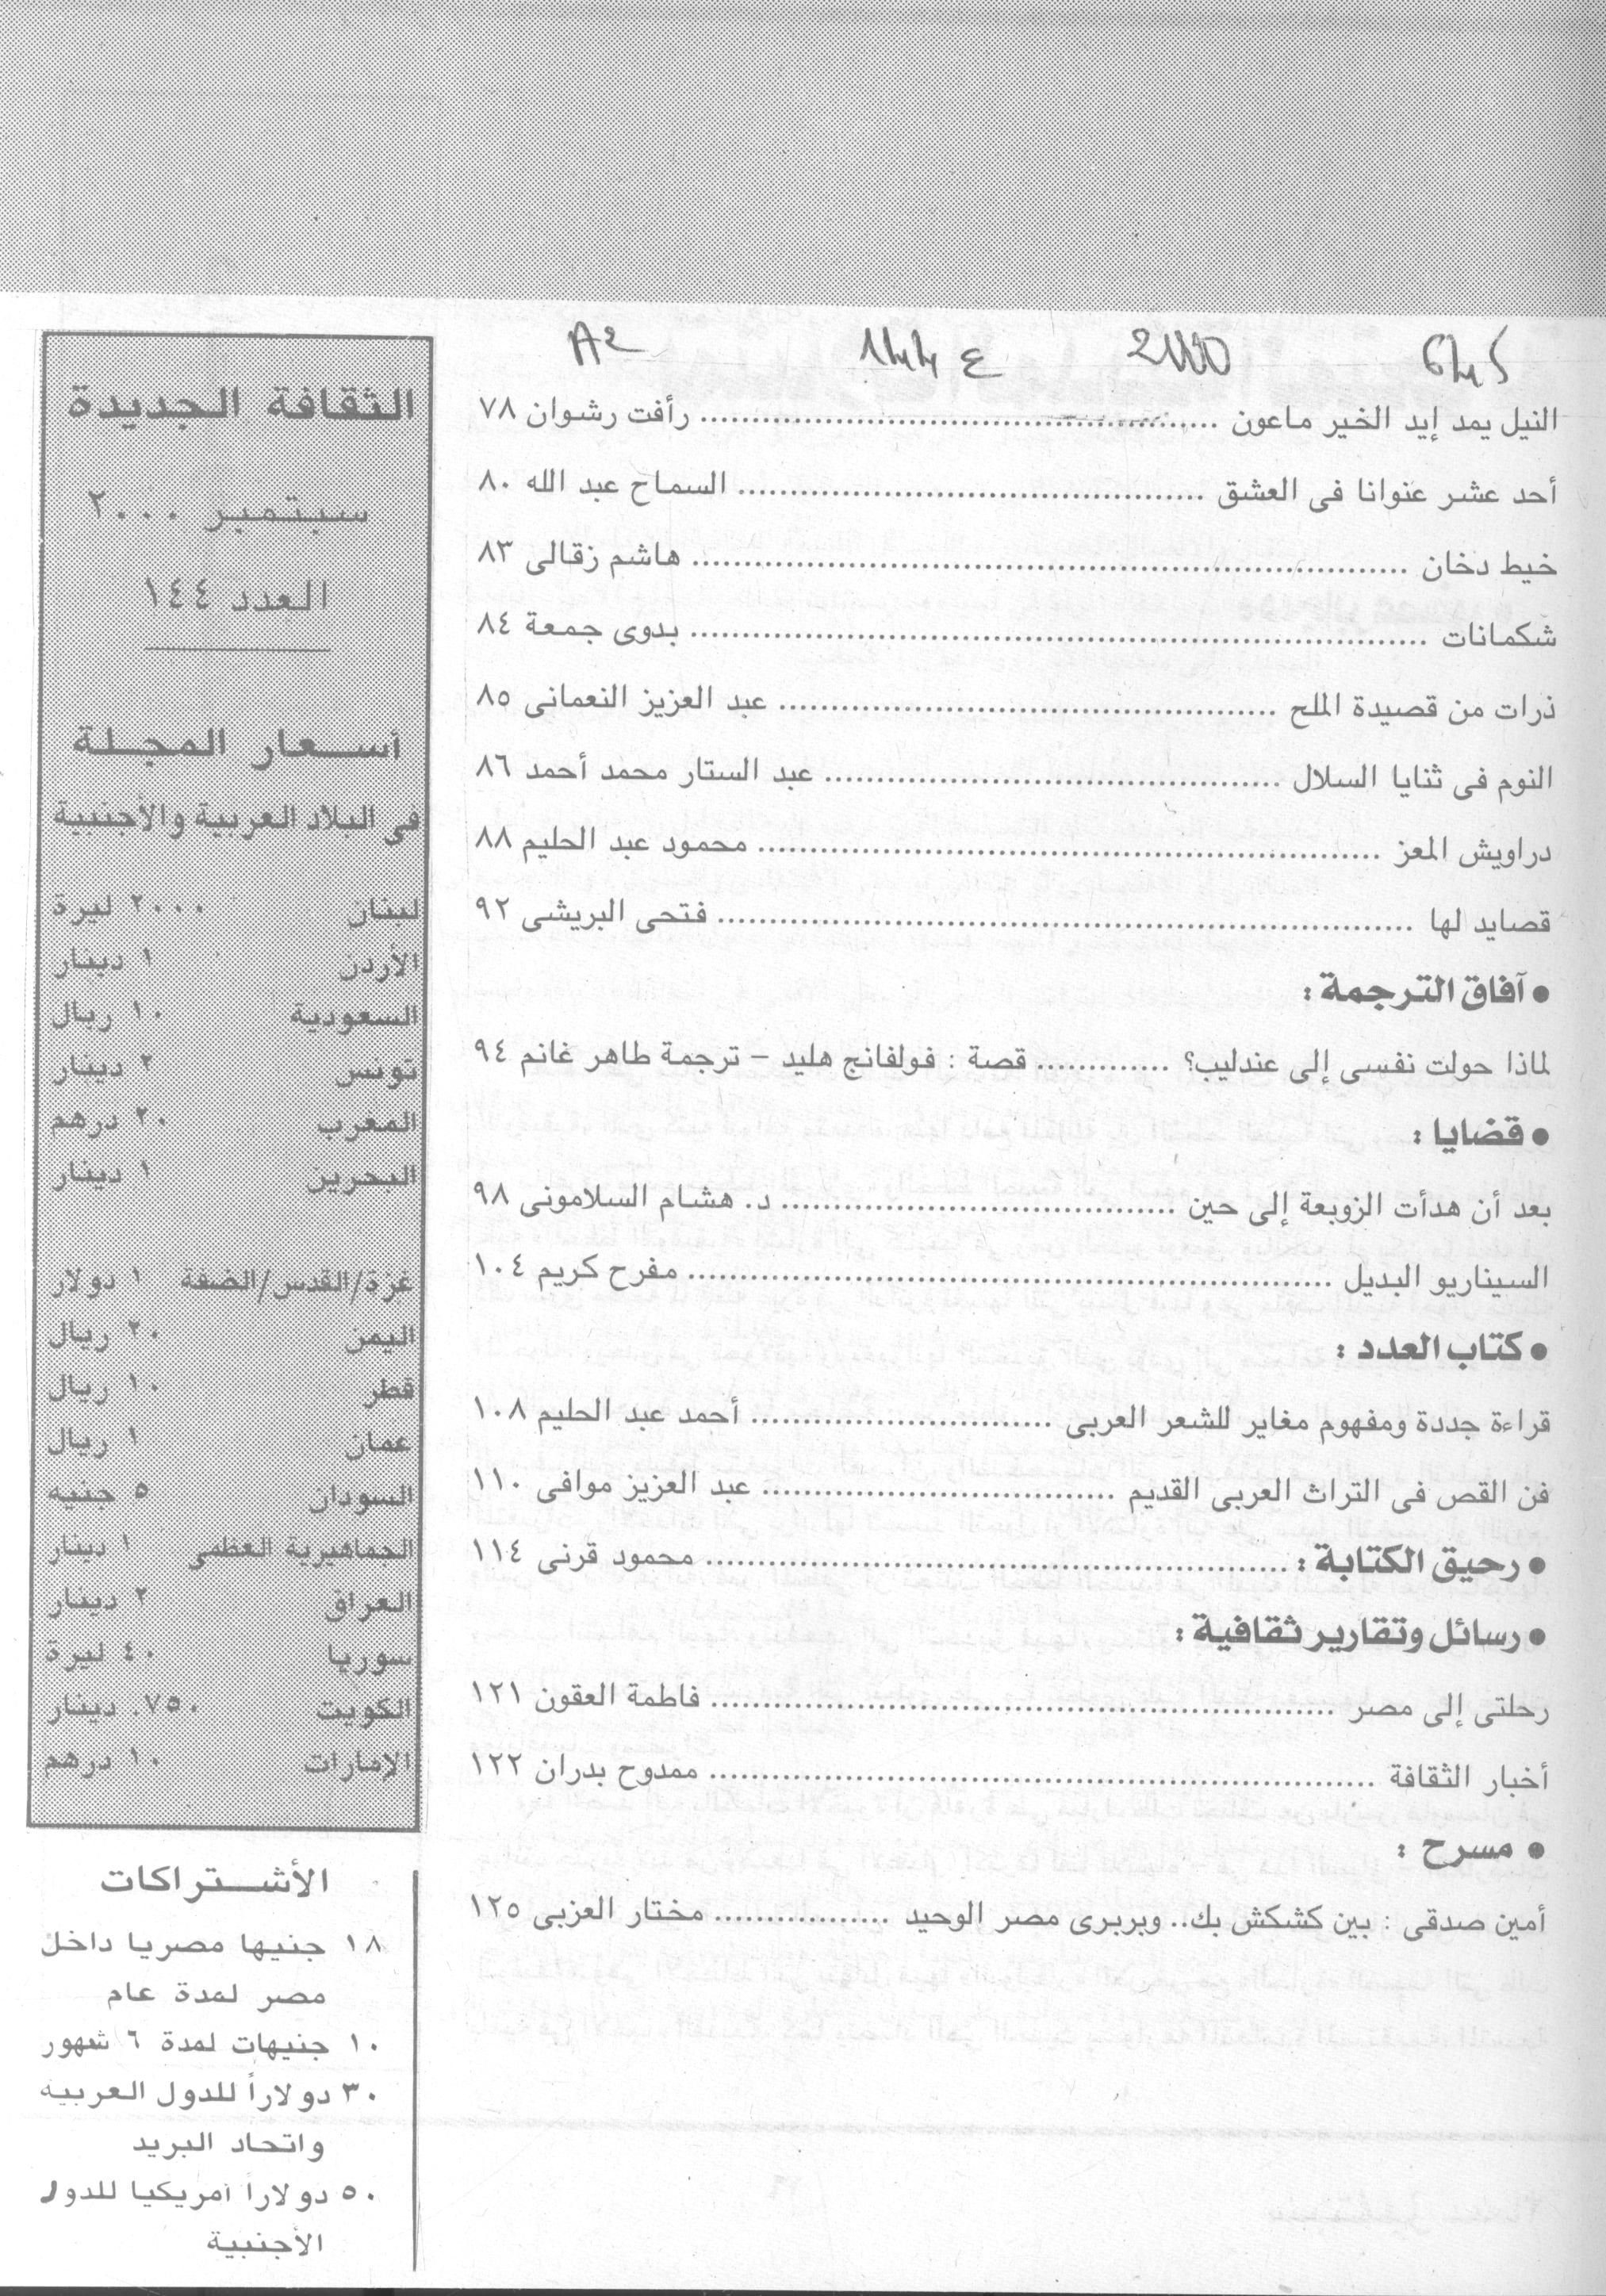 النيل يمد إيد الخير ماعون .................... رأفت رشوان ٧٨
أحد عشر عنوانا فى العشق .................... السماح عبد الله ٨٠
خيط دخان .................... هاشم زقالى ٨٣
شكمانات .................... بدوى جمعة ٨٤
ذرات من قصيدة الملح .................... عبد العزيز النعمانى ٨٥
النوم فى ثنايا السلال .................... عبد الستار محمد أحمد ٨٦
دراويش المعز .................... محمود عبد الحليم ٨٨
قصايد لها .................... فتحى البريشى ٩٢
● آفاق الترجمة :
لماذا حولت نفسى إلى عندليب؟ ............. قصة : فولفانج هليد – ترجمة طاهر غانم ٩٤
● قضايا :
بعد أن هدأت الزوبعة إلى حين .................... د. هشام السلامونى ٩٨
السيناريو البديل .................... مفرح كريم ١٠٤
● كتاب العدد :
قراءة جددة ومفهوم مغاير للشعر العربى .................... أحمد عبد الحليم ١٠٨
فن القص فى التراث العربى القديم .................... عبد العزيز موافى ١١٠
● رحيق الكتابة : .................... محمود قرنى ١١٤
● رسائل وتقارير ثقافية :
رحلتى إلى مصر .................... فاطمة العقون ١٢١
أخبار الثقافة .................... ممدوح بدران ١٢٢
● مسرح :
أمين صدقى : بين كشكش بك.. وبربرى مصر الوحيد ................. مختار العزبى ١٢٥
الثقافة الجديدة
سبتمبر ٢٠٠٠
العدد ١٤٤
أسعار المجلة
فى البلاد العربية والأجنبية
لبنان ٢٠٠٠ ليرة
الأردن ١ دينار
السعودية ١٠ ريال
تونس ٢ دينار
المغرب ٢٠ درهم
البحرين ١ دينار
غزة/القدس/الضفة ١ دولار
اليمن ٢٠ ريال
قطر ١٠ ريال
عمان ١ ريال
السودان ٥ جنيه
الجماهيرية العظمى ١ دينار
العراق ٢ دينار
سوريا ٤٠ ليرة
الكويت ٧٥٠. دينار
الإمارات ١٠ درهم
الأشتراكات
١٨ جنيها مصريا داخل
مصر لمدة عام
١٠ جنيهات لمدة ٦ شهور
٣٠ دولاراً للدول العربيه
واتحاد البريد
٥٠ دولاراً أمريكيا للدول
الأجنبية